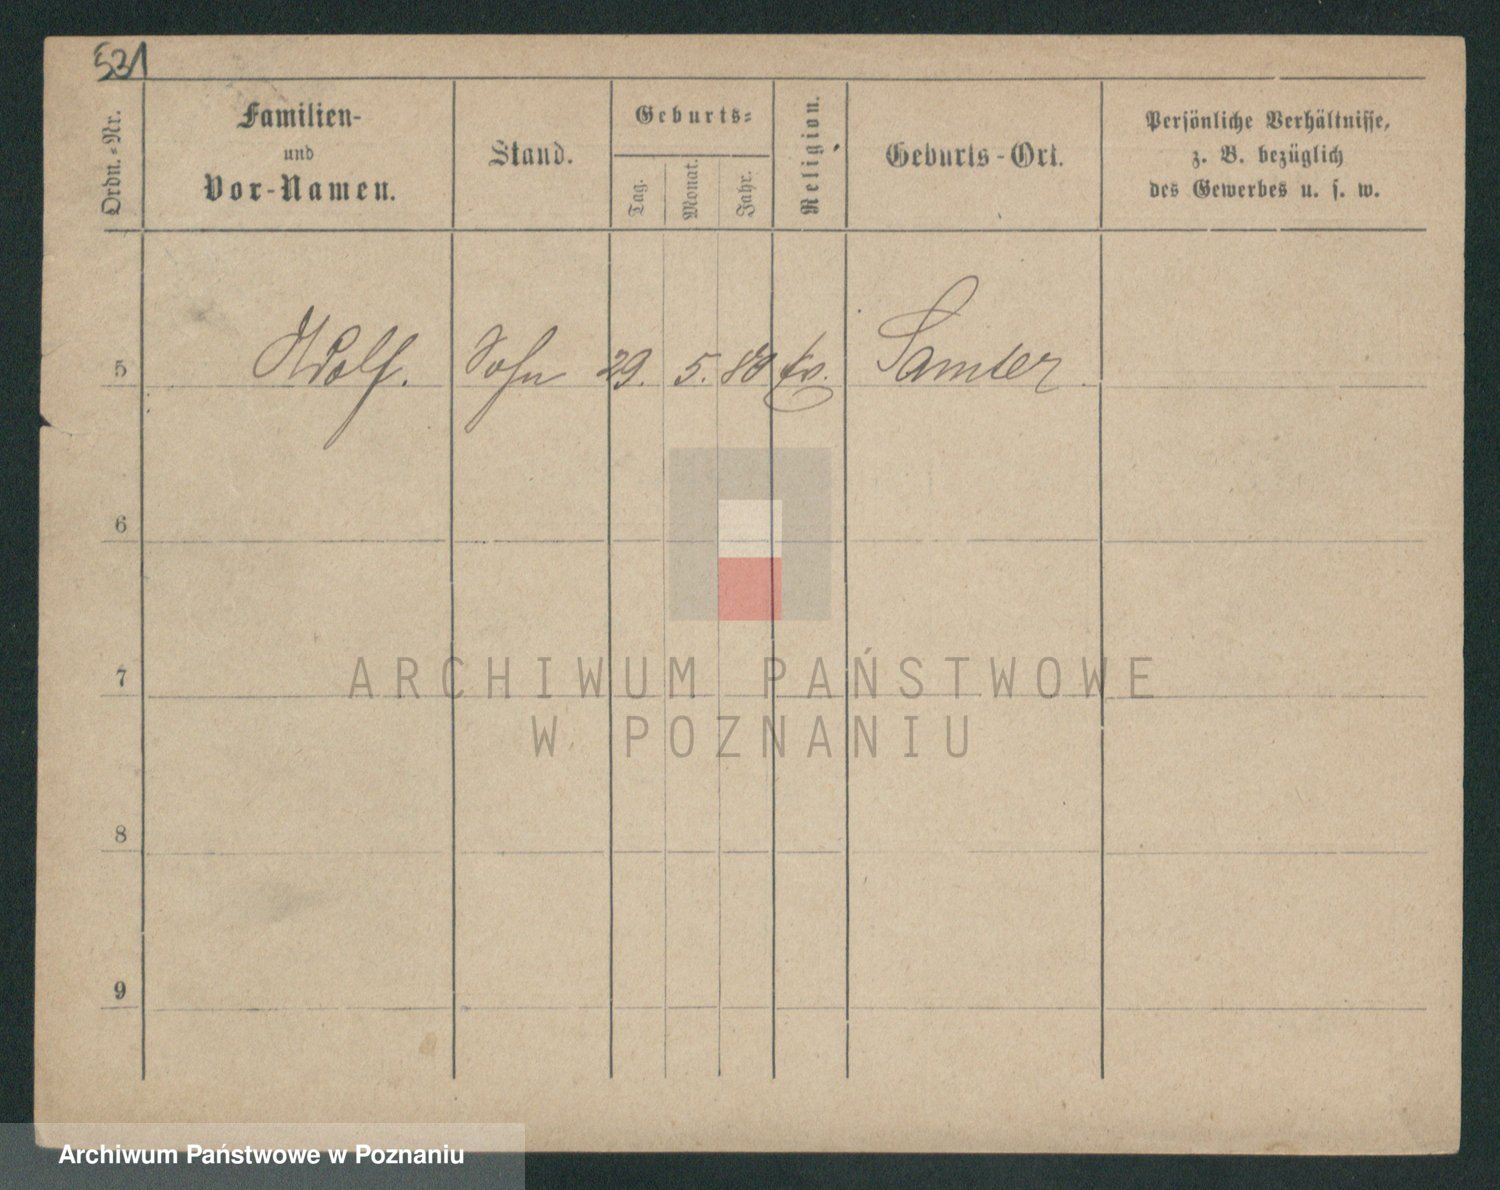 531
Ordn.-Nr.
Familien-
und
Vor-Namen.
Stand.
Geburts-
Tag.
Monat.
Jahr.
Religion.
Geburts-Ort.
Persönliche Verhältnisse,
z. B. bezüglich
des Gewerbes u. s. w.
5 Adolf. Sohn 29. 5. 80 Samter
6
7
8
9
ARCHIWUM PAŃSTWOWE
W POZNANIU
Archiwum Państwowe w Poznaniu